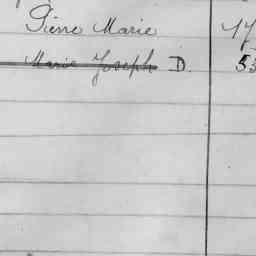 Pierre Marie 47
Marie Joseph D. 53